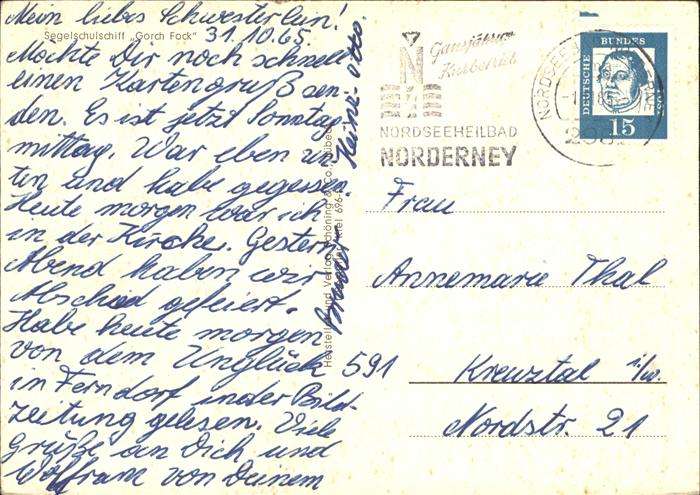 Mein liebes Schwesterlein!
Segelschulschiff „Gorch Fock"
31.10.65
Möchte Dir noch schnell
einen Kartengruß sen-
den. Es ist jetzt Sonntag-
mittag. War eben un-
ten und habe gegessen.
Heute morgen war ich
in der Kirche. Gestern
Abend haben wir
Abschied gefeiert.
Habe heute morgen
von dem Unglück
in Ferndorf in der Bild-
zeitung gelesen. Viele
Grüße an Dich und
Wolfram von Deinem
Bruder
Otto
Herstellung und Verlag Schöning & Co., Lübeck
Ganzjährig
Kurbetrieb
N
NORDSEEHEILBAD
NORDERNEY
NORDSEE
DEUTSCHE
BUNDES
15
Frau
Annemarie Thal
591 Kreuztal i/w.
Nordstr. 21